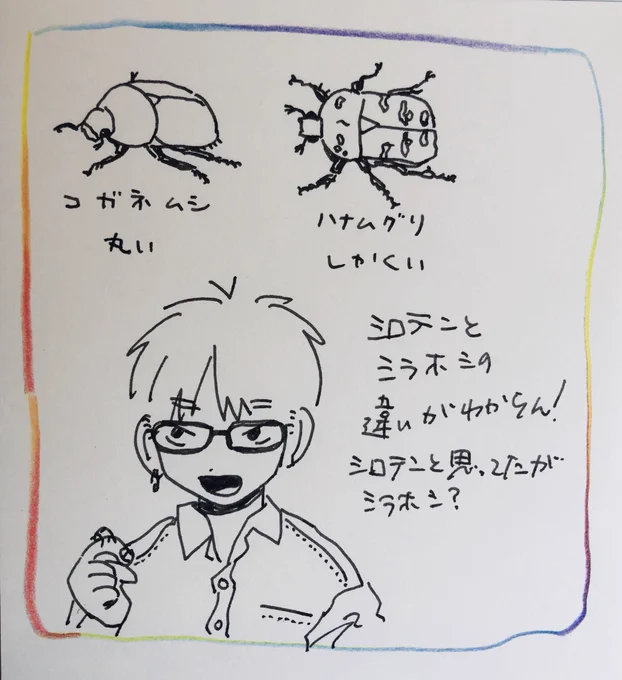 コガネムシ
丸い
ハナムグリ
しかくい
シロテンと
シラホシの
違いがわからん!
シロテンと思ってたが
シラホシ?